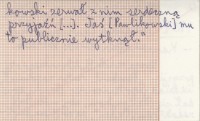 kowski zerwał z nim serdeczną
przyjaźń [...]. Jaś [Pawlikowski] mu
to publicznie wytknął."